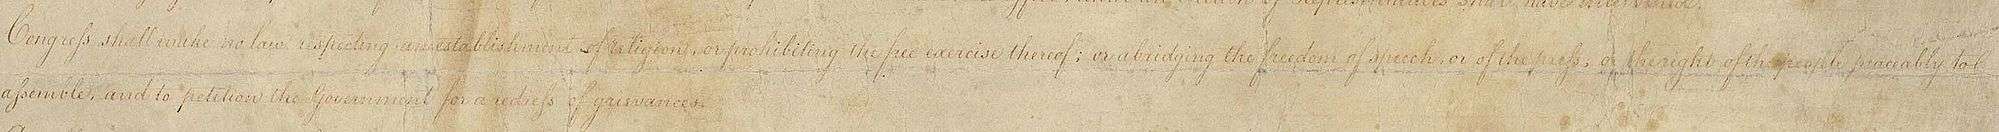 Representatives shall have intervened.
Congress shall make no law respecting an establishment of religion, or prohibiting the free exercise thereof; or abridging the freedom of speech, or of the press, or the right of the people peaceably to
assemble, and to petition the Government for a redress of grievances.